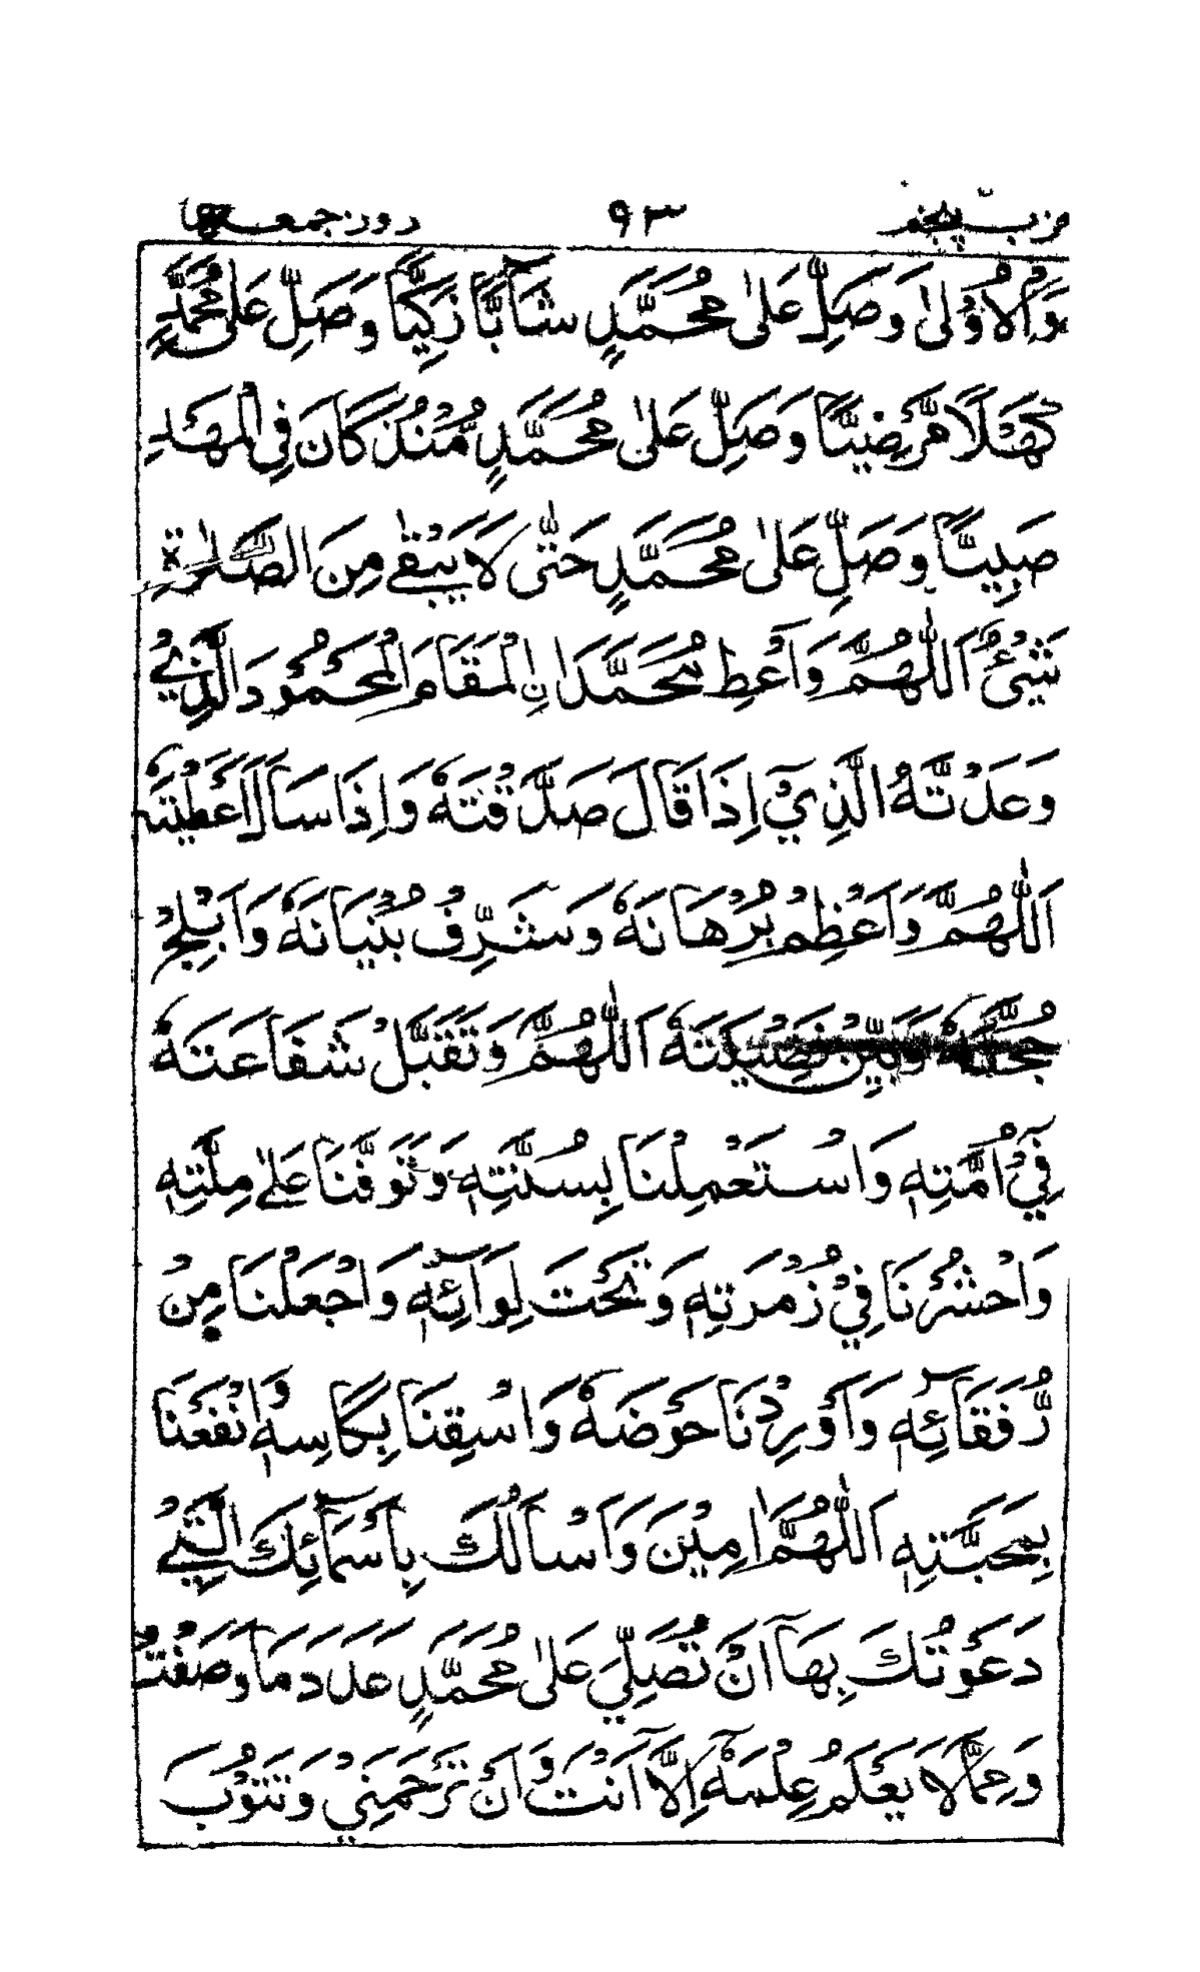 حزب پنجم ۹۳ روز جمعہ
وَالْاُوْلٰى وَصَلِّ عَلٰى مُحَمَّدٍ شَآبًّا زَكِيًّا وَصَلِّ عَلٰى مُحَمَّدٍ
كَهْلًا مَّرْضِيًّا وَصَلِّ عَلٰى مُحَمَّدٍ مُّنْذُ كَانَ فِي الْمَهْدِ
صَبِيًّا وَصَلِّ عَلٰى مُحَمَّدٍ حَتّٰى لَا يَبْقٰى مِنَ الصَّلٰوةِ
شَيْئٌ اَللّٰهُمَّ وَاَعْطِ مُحَمَّدَانِ الْمَقَامَ الْمَحْمُوْدَ الَّذِيْ
وَعَدْتَّهُ الَّذِيْ اِذَا قَالَ صَدَّقْتَهٗ وَاِذَا سَاَلَ اَعْطَيْتَهٗ
اَللّٰهُمَّ وَاَعْظِمْ بُرْهَانَهٗ وَشَرِّفْ بُنْيَانَهٗ وَاَبْلِجْ
حُجَّتَهٗ وَبَيِّنْ فَضِيْلَتَهٗ اَللّٰهُمَّ وَتَقَبَّلْ شَفَاعَتَهٗ
فِيْٓ اُمَّتِهٖ وَاسْتَعْمِلْنَا بِسُنَّتِهٖ وَتَوَفَّنَا عَلٰى مِلَّتِهٖ
وَاحْشُرْنَا فِيْ زُمْرَتِهٖ وَتَحْتَ لِوَآئِهٖ وَاجْعَلْنَا مِنْ
رُّفَقَآئِهٖ وَاَوْرِدْنَا حَوْضَهٗ وَاسْقِنَا بِكَاْسِهٖ وَانْفَعْنَا
بِمَحَبَّتِهٖ اَللّٰهُمَّ اٰمِيْنَ وَاَسْاَلُكَ بِاَسْمَآئِكَ الَّتِيْ
دَعَوْتُكَ بِهَآ اَنْ تُصَلِّيَ عَلٰى مُحَمَّدٍ عَدَدَ مَا وَصَفْتُ
وَمِمَّا لَا يَعْلَمُ عِلْمَهٗٓ اِلَّآ اَنْتَ وَاَنْ تَرْحَمَنِيْ وَتَتُوْبَ